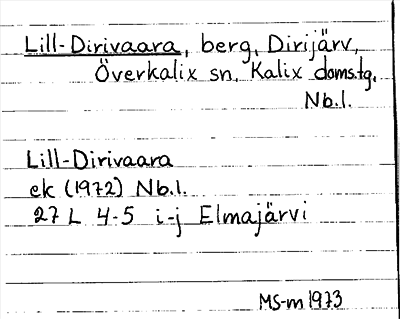 Lill-Dirivaara, berg, Dirijärv,
Överkalix sn, Kalix doms.tg,
Nb.l.
Lill-Dirivaara
ek (1972) Nb.l.
27 L 4-5 i-j Elmajärvi
MS-m 1973